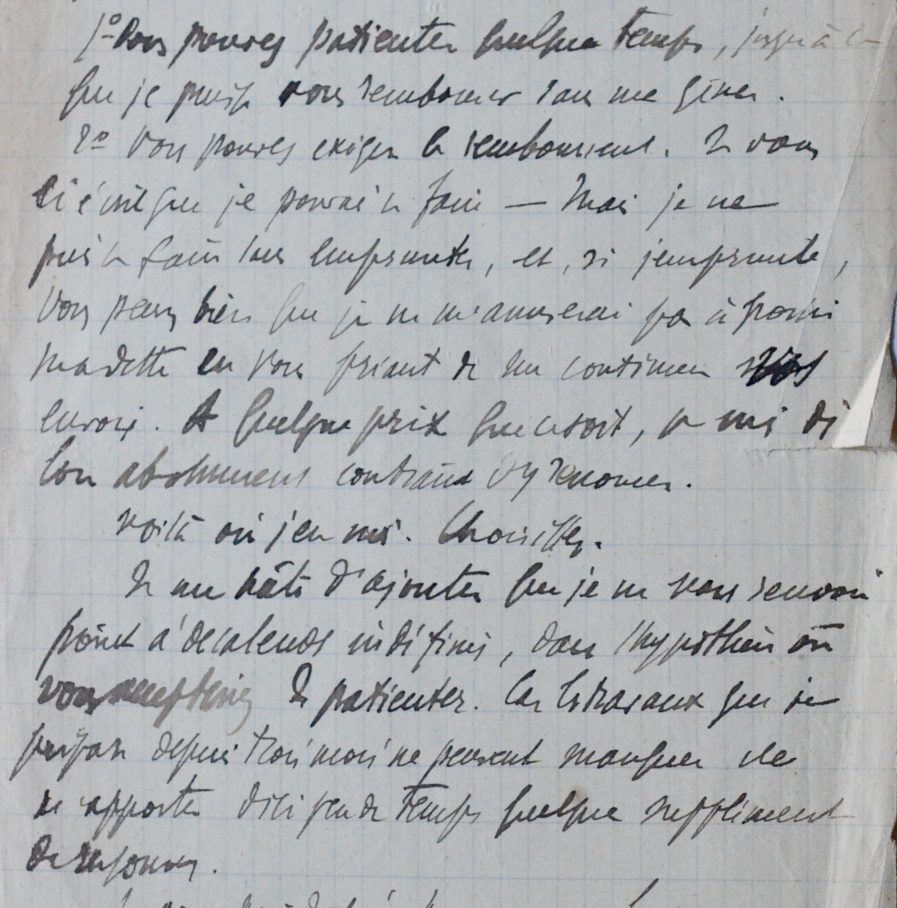 1º Vous pouvez patienter quelque temps, jusqu'à ce
que je puisse vous rembourser sans me gêner.
2º Vous pouvez exiger le remboursement. Je vous
ai écrit que je pourrai le faire — Mais je ne
puis le faire sans emprunter, et, si j'emprunte,
vous pensez bien que je ne m'amuserai pas à
ma dette en vous priant de me continuer vos
envois. A quelque prix que ce soit, je suis dès
lors absolument contraint d'y renoncer.
Voilà où j'en suis. Choisissez.
Je me hâte d'ajouter que je ne vous renvoie
point à des calendes indéfinies, dans l'hypothèse où
vous accepteriez de patienter. Car les travaux que je
prépare depuis trois mois ne peuvent manquer de
m'apporter d'ici peu de temps quelque supplément
de ressources.